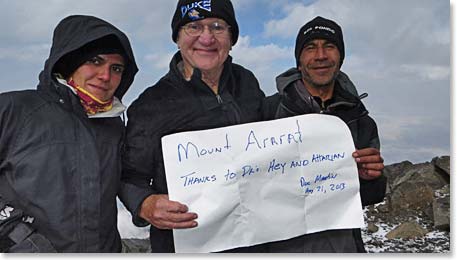 DUKE
Mount Ararat
THANKS TO DR's HEY AND ATTARIAN
Martin
Aug 21, 2013